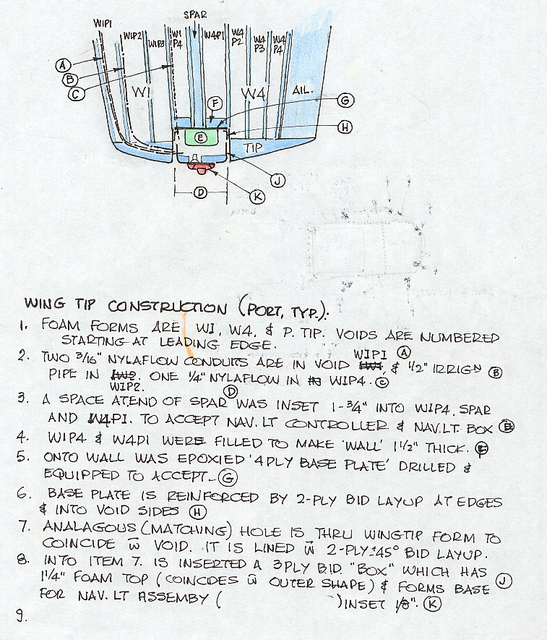 SPAR
W1P1
W1P2
W1P3
W1
P4
W4P1
W4
P2
W4
P3
W4
P4
A
B
C
W1
W4
AIL.
F
G
E
H
TIP
J
D
K
WING TIP CONSTRUCTION (PORT, TYP.).
1. FOAM FORMS ARE W1, W4, & P. TIP. VOIDS ARE NUMBERED
STARTING AT LEADING EDGE.
2. TWO 3/16" NYLAFLOW CONDUITS ARE IN VOID W1P1 (A) & 1/2" IRRIGN (B)
PIPE IN W1P2. ONE 1/4" NYLAFLOW IN W1P4. (C)
3. A SPACE AT END OF SPAR (D) WAS INSET 1-3/4" INTO W1P4, SPAR
AND W4P1. TO ACCEPT NAV. LT CONTROLLER & NAV. LT BOX (E)
4. W1P4 & W4P1 WERE FILLED TO MAKE 'WALL' 1 1/2" THICK. (F)
5. ONTO WALL WAS EPOXIED '4 PLY BASE PLATE' DRILLED &
EQUIPPED TO ACCEPT- (G)
6. BASE PLATE IS REINFORCED BY 2-PLY BID LAYUP AT EDGES
& INTO VOID SIDES (H)
7. ANALAGOUS (MATCHING) HOLE IS THRU WINGTIP FORM TO
COINCIDE W̄ VOID. IT IS LINED W̄ 2-PLY ±45° BID LAYUP.
8. INTO ITEM 7. IS INSERTED A 3PLY BID "BOX" WHICH HAS
1 1/4" FOAM TOP (COINCIDES W̄ OUTER SHAPE) & FORMS BASE (J)
FOR NAV. LT ASSEMBY ( ) INSET 1/8". (K)
9.